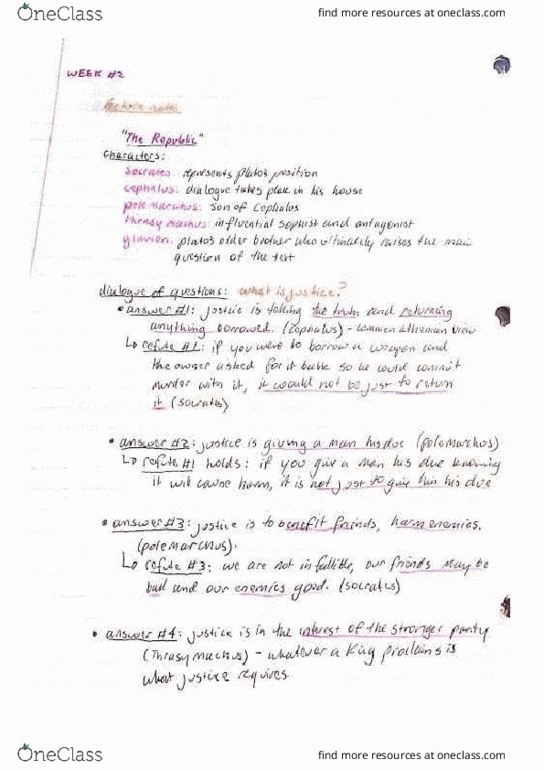 OneClass
find more resources at oneclass.com
WEEK #2
lecture notes
"The Republic"
characters:
socrates: represents plato's position
cephalus: dialogue takes place in his house
polemarchus: son of Cephalus
thrasymachus: influential sophist and antagonist
glaucon: plato's older brother who ultimately raises the main
question of the text
dialogue of questions: what is justice?
• answer #1: justice is telling the truth and returning
anything borrowed. (Cephalus) - common athenian view
↳ refute #1: if you were to borrow a weapon and
the owner asked for it back so he could commit
murder with it, it would not be just to return
it (socrates)
• answer #2: justice is giving a man his due (polemarchos)
↳ refute #1 holds: if you give a man his due knowing
it will cause harm, it is not just to give him his due
• answer #3: justice is to benefit friends, harm enemies.
(polemarchus).
↳ refute #3: we are not infallible, our friends may be
bad and our enemies good. (socrates)
• answer #4: justice is in the interest of the stronger party
(Thrasymachus) - whatever a King proclaims is
what justice requires
OneClass
find more resources at oneclass.com